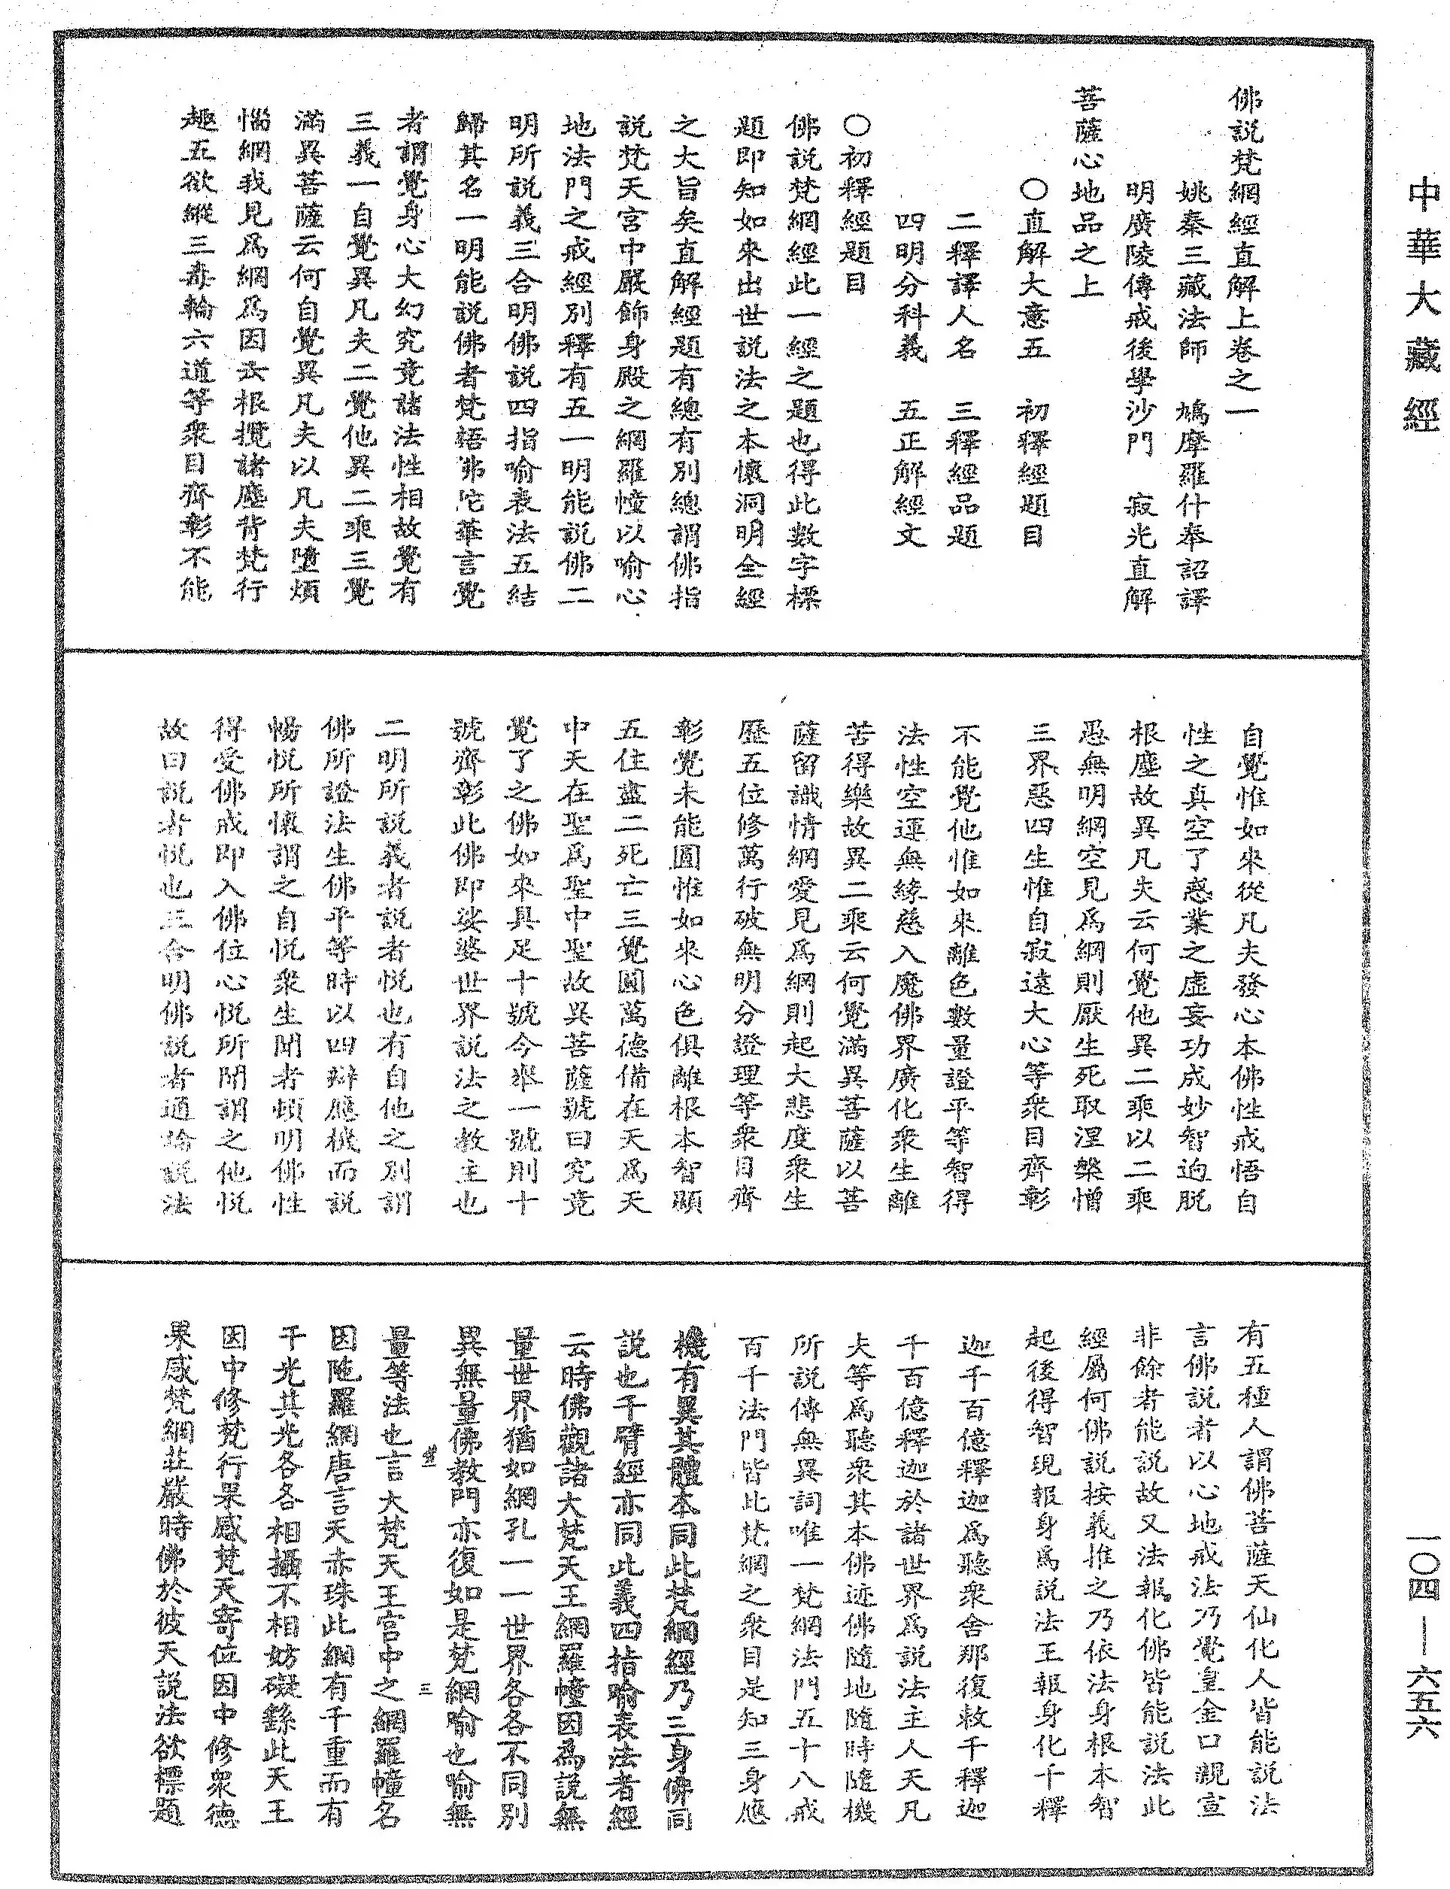 中華大藏經
佛說梵網經直解上卷之一
姚秦三藏法師　鳩摩羅什奉詔譯
明廣陵傳戒後學沙門　寂光直解
菩薩心地品之上
○直解大意五　初釋經題目
二釋譯人名　三釋經品題
四明分科義　五正解經文
○初釋經題目
佛說梵網經此一經之題也得此數字標
題即知如來出世說法之本懷洞明全經
之大旨矣直解經題有總有別總謂佛指
說梵天宮中嚴飾身殿之網羅幢以喻心
地法門之戒經別釋有五一明能說佛二
明所說義三合明佛說四指喻表法五結
歸其名一明能說佛者梵語佛陀華言覺
者謂覺身心大幻究竟諸法性相故覺有
三義一自覺異凡夫二覺他異二乘三覺
滿異菩薩云何自覺異凡夫以凡夫墮煩
惱網我見為網為因六根攬諸塵背梵行
趣五欲縱三毒輪六道等眾目齊彰不能
自覺惟如來從凡夫發心本佛性戒悟自
性之真空了惑業之虛妄功成妙智迥脫
根塵故異凡夫云何覺他異二乘以二乘
愚無明網空見為網則厭生死取涅槃憎
三界惡四生惟自寂遠大心等眾目齊彰
不能覺他惟如來離色數量證平等智得
法性空運無緣慈入魔佛界廣化眾生離
苦得樂故異二乘云何覺滿異菩薩以菩
薩留識情網愛見為網則起大悲度眾生
歷五位修萬行破無明分證理等眾目齊
彰覺未能圓惟如來心色俱離根本智顯
五住盡二死亡三覺圓萬德備在天為天
中天在聖為聖中聖故異菩薩號曰究竟
覺了之佛如來具足十號今舉一號則十
號齊彰此佛即娑婆世界說法之教主也
二明所說義者說者悅也有自他之別謂
佛所證法生佛平等時以四辯應機而說
暢悅所懷謂之自悅眾生聞者頓明佛性
得受佛戒即入佛位心悅所聞謂之他悅
故曰說者悅也三合明佛說者通論說法
有五種人謂佛菩薩天仙化人皆能說法
言佛說者以心地戒法乃覺皇金口親宣
非餘者能說故又法報化佛皆能說法此
經屬何佛說按義推之乃依法身根本智
起後得智現報身為說法王報身化千釋
迦千百億釋迦為聽眾舍那復敕千釋迦
千百億釋迦於諸世界為說法主人天凡
夫等為聽眾其本佛迹佛隨地隨時隨機
所說傳無異詞唯一梵網法門五十八戒
百千法門皆此梵網之眾目是知三身應
機有異其體本同此梵網經乃三身佛同
說也千臂經亦同此義四指喻表法者經
云時佛觀諸大梵天王網羅幢因為說無
量世界猶如網孔一一世界各各不同別
異無量佛教門亦復如是梵網喻也喻無
量等法也言大梵天王宮中之網羅幢名
因陀羅網唐言天赤珠此網有千重而有
千光其光各各相攝不相妨礙繇此天王
因中修梵行果感梵天寄位因中修眾德
果感梵網莊嚴時佛於彼天說法欲標題
三
一〇四—六五六